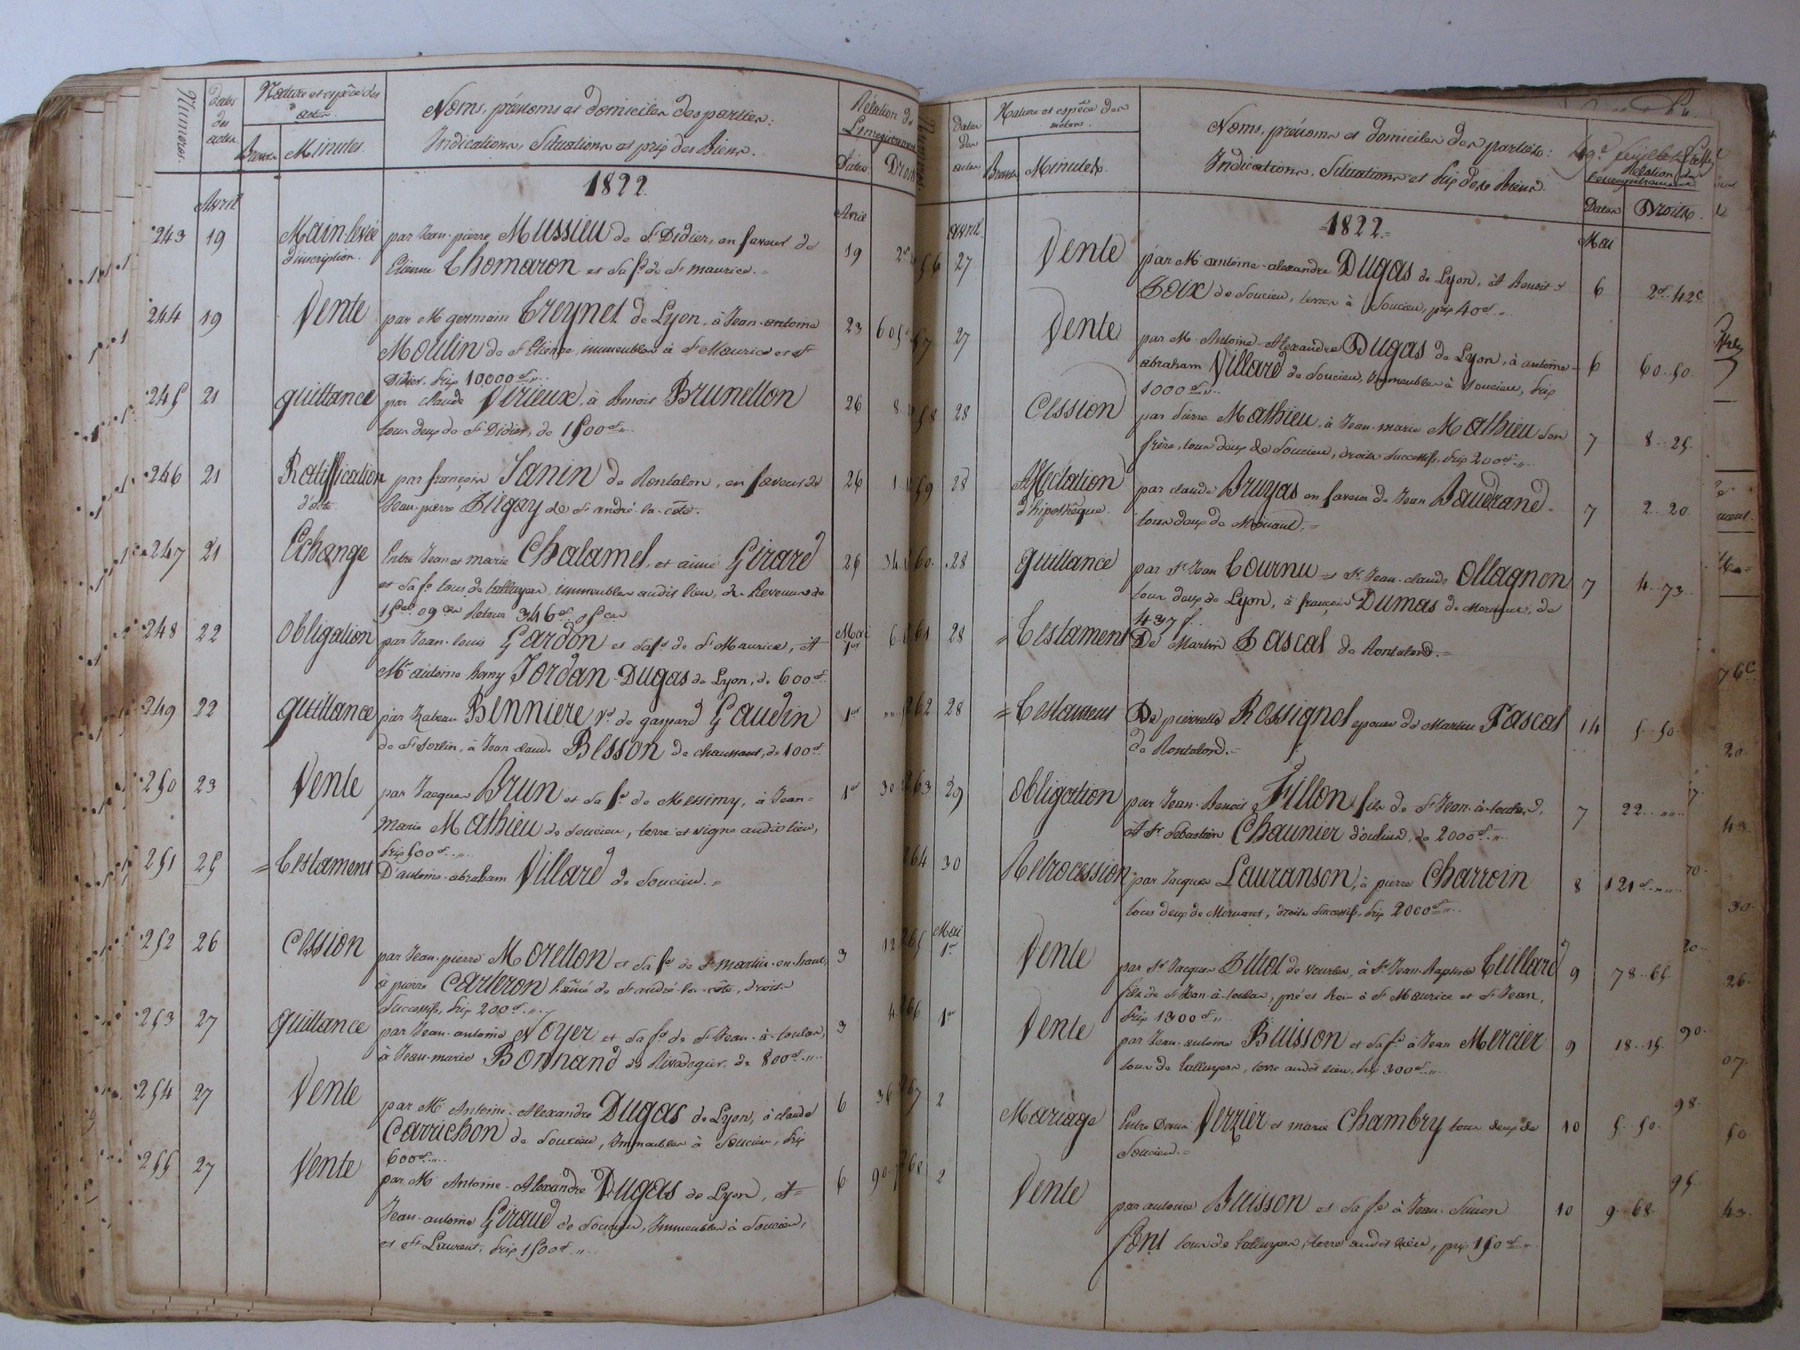 Numéros
Dates des actes
Nature et espèce des actes
Brevets Minutes
Noms, prénoms et domiciles des parties:
Indications, Situations et prix des Biens.
Relation de L'enregistrement
Dates Droits
1822
Avril Avril
243 19 Mainlevée par Jean-pierre Mussieu de St Didier, en faveur de 19 2
d'inscription. Etienne Thomaron et sa fe de St maurice.
244 19 Vente par Mr germain Treynet de Lyon, à Jean-antoine 23 605
Moulin de St Etienne, immeubles à St Maurice et St
Didier, prix 10,000 f
245 21 quittance par claude Vérieux, à Benoit Brunellon 26 8
tous deux de St Didier, de 1500 f
246 21 Ratiffication par françois Janin de Rontalon, en faveur de 26 1
d'acte Jean-pierre Bugay de St andré-la-côte.
247 21 Echange Entre Jean et marie Chalamel, et aimé Girard 26 34
et sa fe tous de taluyers, immeubles audit lieu, de Revenu de
15 f 09 c Retour 346 f 05 c
248 22 obligation par Jean-louis Gardon et sa fe de St Maurice, à Mai 1er 6
Mr antoine hany Jordan-Dugas de Lyon, de 600 f
249 22 quittance par Bennière Ve de gaspard Gaudin 1er
de St Sorlin, à Jean claude Besson de chaussant, de 100 f
250 23 Vente par Jacques Brun et sa fe de Messimy, à Jean- 1er 30
Marie Mathieu de Soucieu, terre et vigne audit lieu,
prix 500 f
251 25 = Testament D'antoine-abraham Villard de Soucieu.
252 26 Cession par Jean-pierre Morellon et sa fe de St martin-en-haut, 3 12
à pierre Carteron l'ainé de St andré-la-côte, droits
Successifs, prix 200 f
253 27 quittance par Jean-antoine Noyer et sa fe de St Jean-à-toulas, 3 4
à Jean-marie Bonnand de Rivedegier, de 800 f
254 27 Vente par Mr Antoine-Alexandre Dugas de Lyon, à claude 6 36
Carrichon de Soucieu, Immeubles à Soucieu, prix
600 f
255 27 Vente par Mr Antoine-Alexandre Dugas de Lyon, à 6 90
Jean-antoine Giraud de Soucieu, Immeubles à Soucieu,
et St Laurent, prix 1500 f
Dates des actes
Nature et espèce des actes.
Brevets Minutes.
Noms, prénoms et domiciles des parties:
Indications, Situations et prix des Biens.
Relation de l'enregistrement
Dates Droits.
1822
Avril Mai
56 27 Vente par Mr antoine-alexandre Dugas de Lyon, à Benoit 6 2 f 42 c
Boix de Soucieu, terres à Soucieu, prix 40 f
57 27 Vente par Mr Antoine-Alexandre Dugas de Lyon, à antoine- 6 60 50
abraham Villard de Soucieu, Immeubles à Soucieu, prix
1000 f
58 28 Cession par Pierre Mathieu, à Jean-marie Mathieu son 7 8 25
frère, tous deux de Soucieu, droits Successifs, prix 200 f
59 28 Affectation par claude Bruyas en faveur de Jean Baudrand 7 2 20
d'hipothèque. tous deux de Mornant.
60 28 quittance par St Jean Tournu et St Jean-claude Ollagnon 7 4 73
tous deux de Lyon, à françois Dumas de Mornant, de
437 f
61 28 = Testament De Martin Pascal de Rontalond.
262 28 = Testament De pierrette Rossignol epouse de Martin Pascal 14 5 50
de Rontalond.
263 29 obligation par Jean-Benoit Fillon fils de St Jean-à-toulas, 7 22
à St Sébastien Chaunier d'oulins, de 2000 f
264 30 Retrocession par Jacques Lauranson, à pierre Charroin 8 121 f
tous deux de Mornant, droits Successifs, prix 2000 f
265 Mai 1er Vente par St Jacques Billot de Vourles, à St Jean-Baptiste Teillard 9 78 65
fils de St Jean-à-toulas, pré et Bois à St Maurice et St Jean,
prix 1300 f
266 1er Vente par Jean-antoine Buisson et sa fe à Jean Mercier 9 18 15
tous de taluyers, terre audit lieu, prix 300 f
267 2 Mariage Entre Verzier et marie Chambry tous deux de 10 5 50
Soucieu.
268 2 Vente par antoine Buisson et sa fe à Jean-Simon 10 9 68
font tous de taluyers, terre audit lieu, prix 150 f